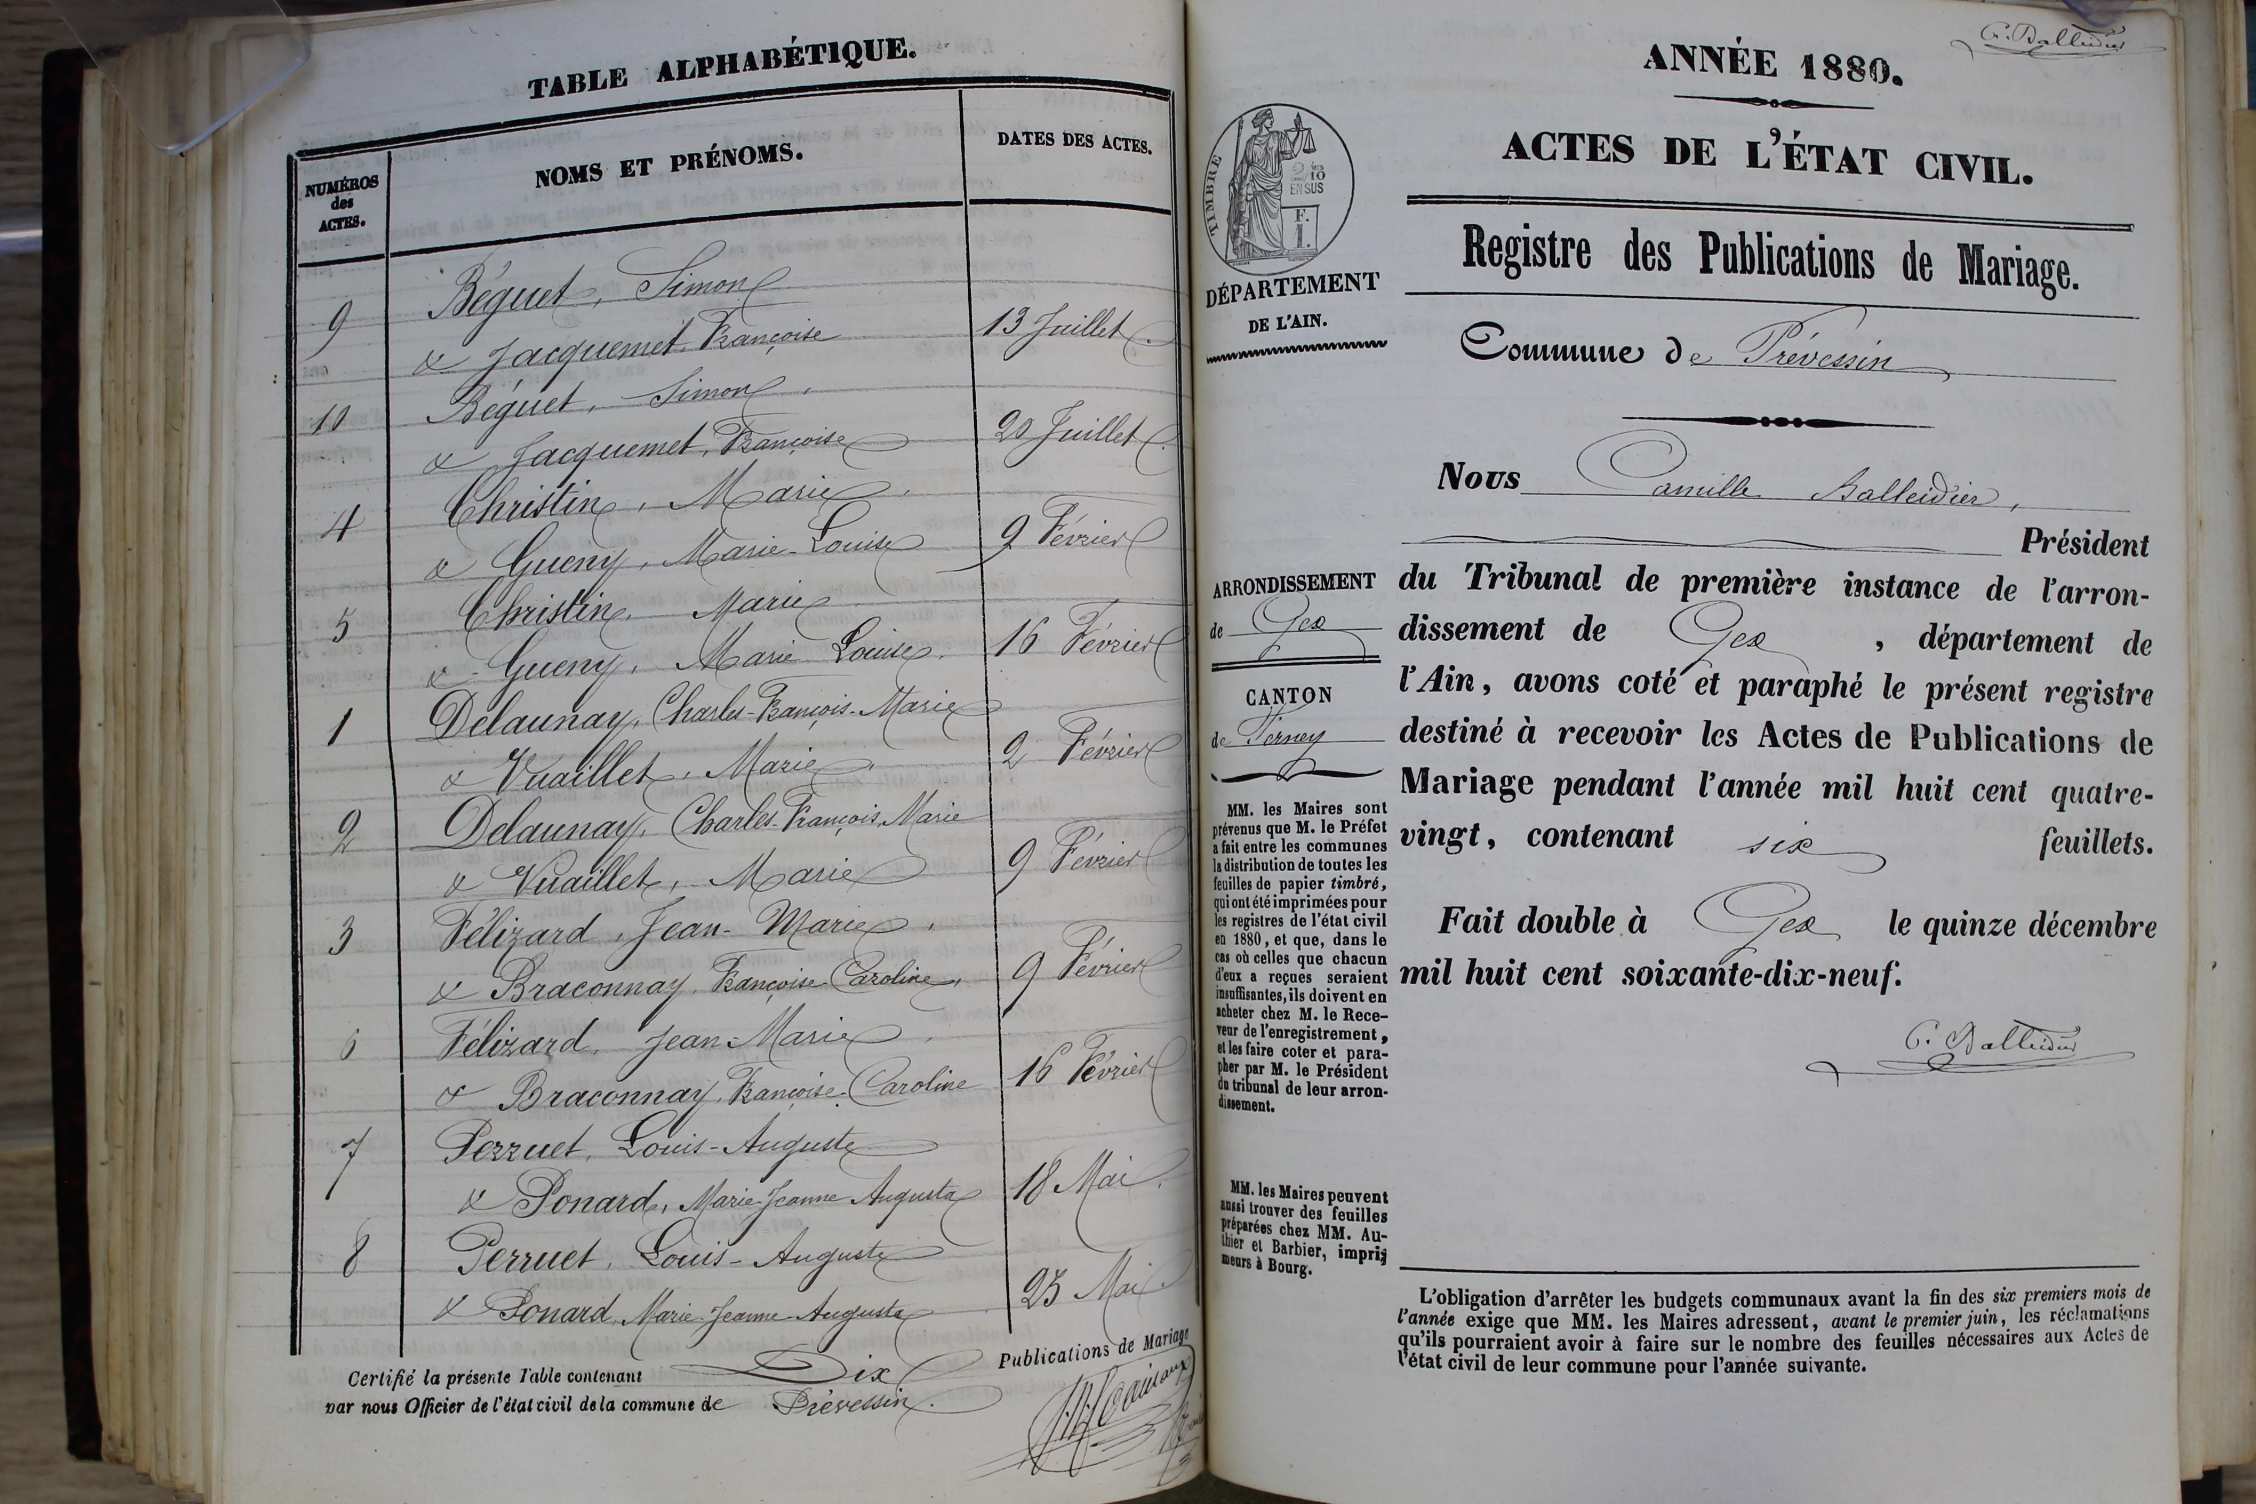 TABLE ALPHABÉTIQUE.
NUMÉROS
des
ACTES.
NOMS ET PRÉNOMS.
DATES DES ACTES.
9 Béguet, Simon
& Jacquemet, Françoise 13 Juillet
10 Béguet, Simon
& Jacquemet, Françoise 20 Juillet
4 Christin, Marie
& Gueny, Marie-Louise 9 Février
5 Christin, Marie
& Gueny, Marie Louise 16 Février
1 Delaunay, Charles-François-Marie
& Vuaillet, Marie 2 Février
2 Delaunay, Charles-François-Marie
& Vuaillet, Marie 9 Février
3 Félizard, Jean-Marie
& Braconnay, Françoise Caroline, 9 Février
6 Félizard, Jean-Marie
& Braconnay, Françoise-Caroline 16 Février
7 Perruet, Louis-Auguste
& Ponard, Marie-Jeanne Augusta 18 Mai
8 Perruet, Louis-Auguste
& Ponard, Marie-Jeanne-Augusta 25 Mai
Certifié la présente Table contenant Dix Publications de Mariage
par nous Officier de l'état civil de la commune de Prévessin.
C. Balleidier
ANNÉE 1880.
ACTES DE L'ÉTAT CIVIL.
Registre des Publications de Mariage.
Commune de Prévessin
Nous Camille Balleidier,
Président
du Tribunal de première instance de l'arron-
dissement de Gex, département de
l'Ain, avons coté et paraphé le présent registre
destiné à recevoir les Actes de Publications de
Mariage pendant l'année mil huit cent quatre-
vingt, contenant six feuillets.
Fait double à Gex le quinze décembre
mil huit cent soixante-dix-neuf.
C. Balleidier
TIMBRE
2/10
EN SUS
F.
1.
DÉPARTEMENT
DE L'AIN.
ARRONDISSEMENT
de Gex
CANTON
de Ferney
MM. les Maires sont
prévenus que M. le Préfet
a fait entre les communes
la distribution de toutes les
feuilles de papier timbré,
qui ont été imprimées pour
les registres de l'état civil
en 1880, et que, dans le
cas où celles que chacun
d'eux a reçues seraient
insuffisantes, ils doivent en
acheter chez M. le Rece-
veur de l'enregistrement,
et les faire coter et para-
pher par M. le Président
du tribunal de leur arron-
dissement.
MM. les Maires peuvent
aussi trouver des feuilles
préparées chez MM. Au-
thier et Barbier, impri-
meurs à Bourg.
L'obligation d'arrêter les budgets communaux avant la fin des six premiers mois de
l'année exige que MM. les Maires adressent, avant le premier juin, les réclamations
qu'ils pourraient avoir à faire sur le nombre des feuilles nécessaires aux Actes de
l'état civil de leur commune pour l'année suivante.